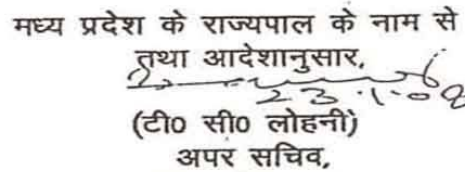 मध्य प्रदेश के राज्यपाल के नाम से
तथा आदेशानुसार,
23.1.08
(टी0 सी0 लोहनी)
अपर सचिव,